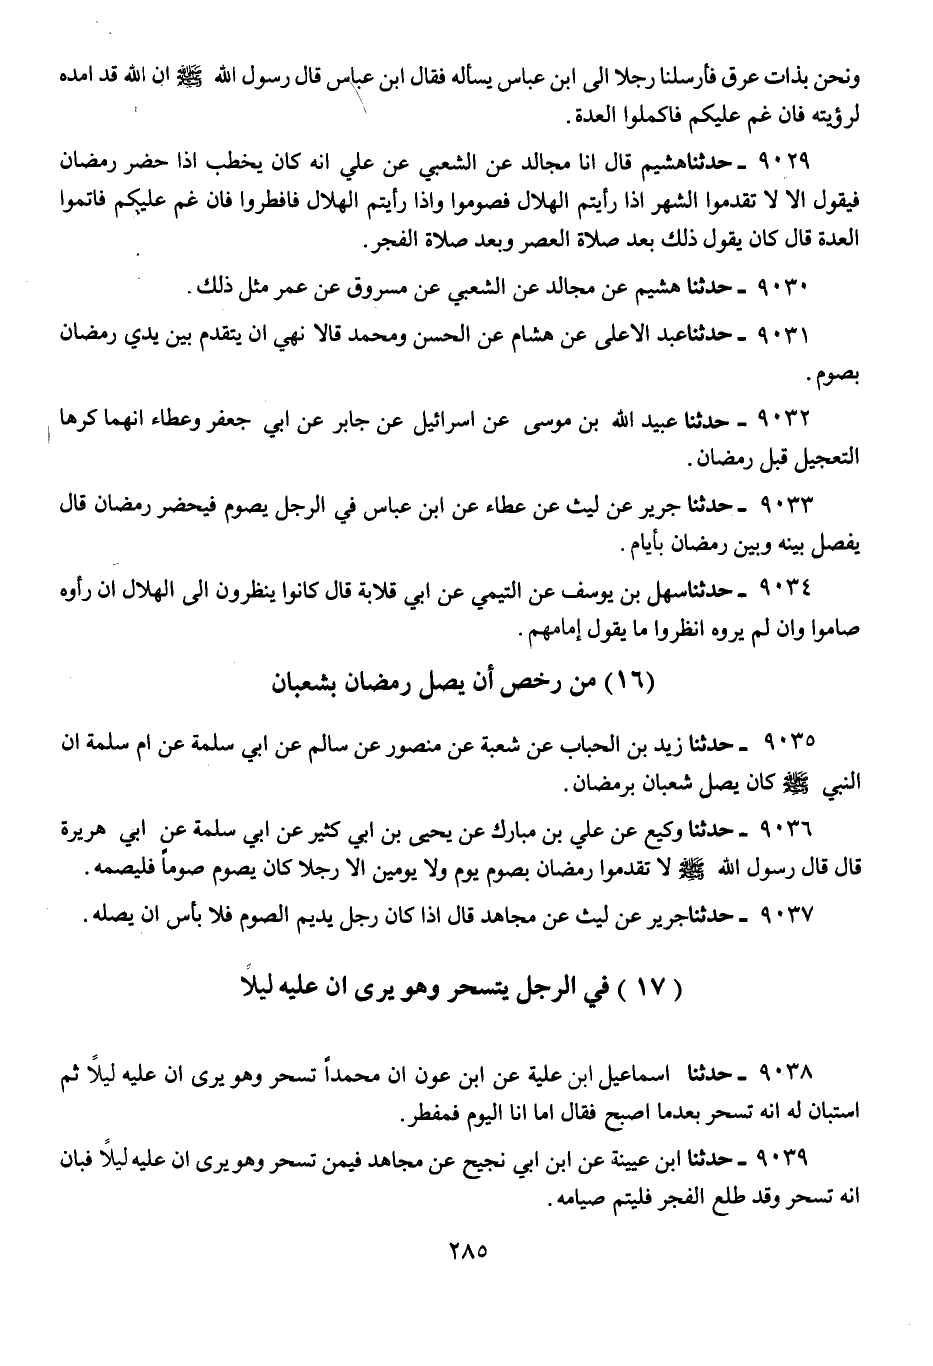 ونحن بذات عرق فأرسلنا رجلا الى ابن عباس يسأله فقال ابن عباس قال رسول الله ﷺ ان الله قد امده
لرؤيته فان غم عليكم فاكملوا العدة.
٩٠٢٩ ـ حدثناهشيم قال انا مجالد عن الشعبي عن علي انه كان يخطب اذا حضر رمضان
فيقول الا لا تقدموا الشهر اذا رأيتم الهلال فصوموا واذا رأيتم الهلال فافطروا فان غم عليكم فاتموا
العدة قال كان يقول ذلك بعد صلاة العصر وبعد صلاة الفجر.
٩٠٣٠ ـ حدثنا هشيم عن مجالد عن الشعبي عن مسروق عن عمر مثل ذلك.
٩٠٣١ ـ حدثناعبد الاعلى عن هشام عن الحسن ومحمد قالا نهي ان يتقدم بين يدي رمضان
بصوم.
٩٠٣٢ ـ حدثنا عبيد الله بن موسى عن اسرائيل عن جابر عن ابي جعفر وعطاء انهما كرها
التعجيل قبل رمضان.
٩٠٣٣ ـ حدثنا جرير عن ليث عن عطاء عن ابن عباس في الرجل يصوم فيحضر رمضان قال
يفصل بينه وبين رمضان بأيام.
٩٠٣٤ ـ حدثناسهل بن يوسف عن التيمي عن ابي قلابة قال كانوا ينظرون الى الهلال ان رأوه
صاموا وان لم يروه انظروا ما يقول إمامهم.
(١٦) من رخص أن يصل رمضان بشعبان
٩٠٣٥ ـ حدثنا زيد بن الحباب عن شعبة عن منصور عن سالم عن ابي سلمة عن ام سلمة ان
النبي ﷺ كان يصل شعبان برمضان.
٩٠٣٦ ـ حدثنا وكيع عن علي بن مبارك عن يحيى بن ابي كثير عن ابي سلمة عن ابي هريرة
قال قال رسول الله ﷺ لا تقدموا رمضان بصوم يوم ولا يومين الا رجلا كان يصوم صوماً فليصمه.
٩٠٣٧ ـ حدثناجرير عن ليث عن مجاهد قال اذا كان رجل يديم الصوم فلا بأس ان يصله.
(١٧) في الرجل يتسحر وهو يرى ان عليه ليلاً
٩٠٣٨ ـ حدثنا اسماعيل ابن علية عن ابن عون ان محمداً تسحر وهو يرى ان عليه ليلاً ثم
استبان له انه تسحر بعدما اصبح فقال اما انا اليوم فمفطر.
٩٠٣٩ ـ حدثنا ابن عيينة عن ابن ابي نجيح عن مجاهد فيمن تسحر وهو يرى ان عليه ليلاً فبان
انه تسحر وقد طلع الفجر فليتم صيامه.
٢٨٥